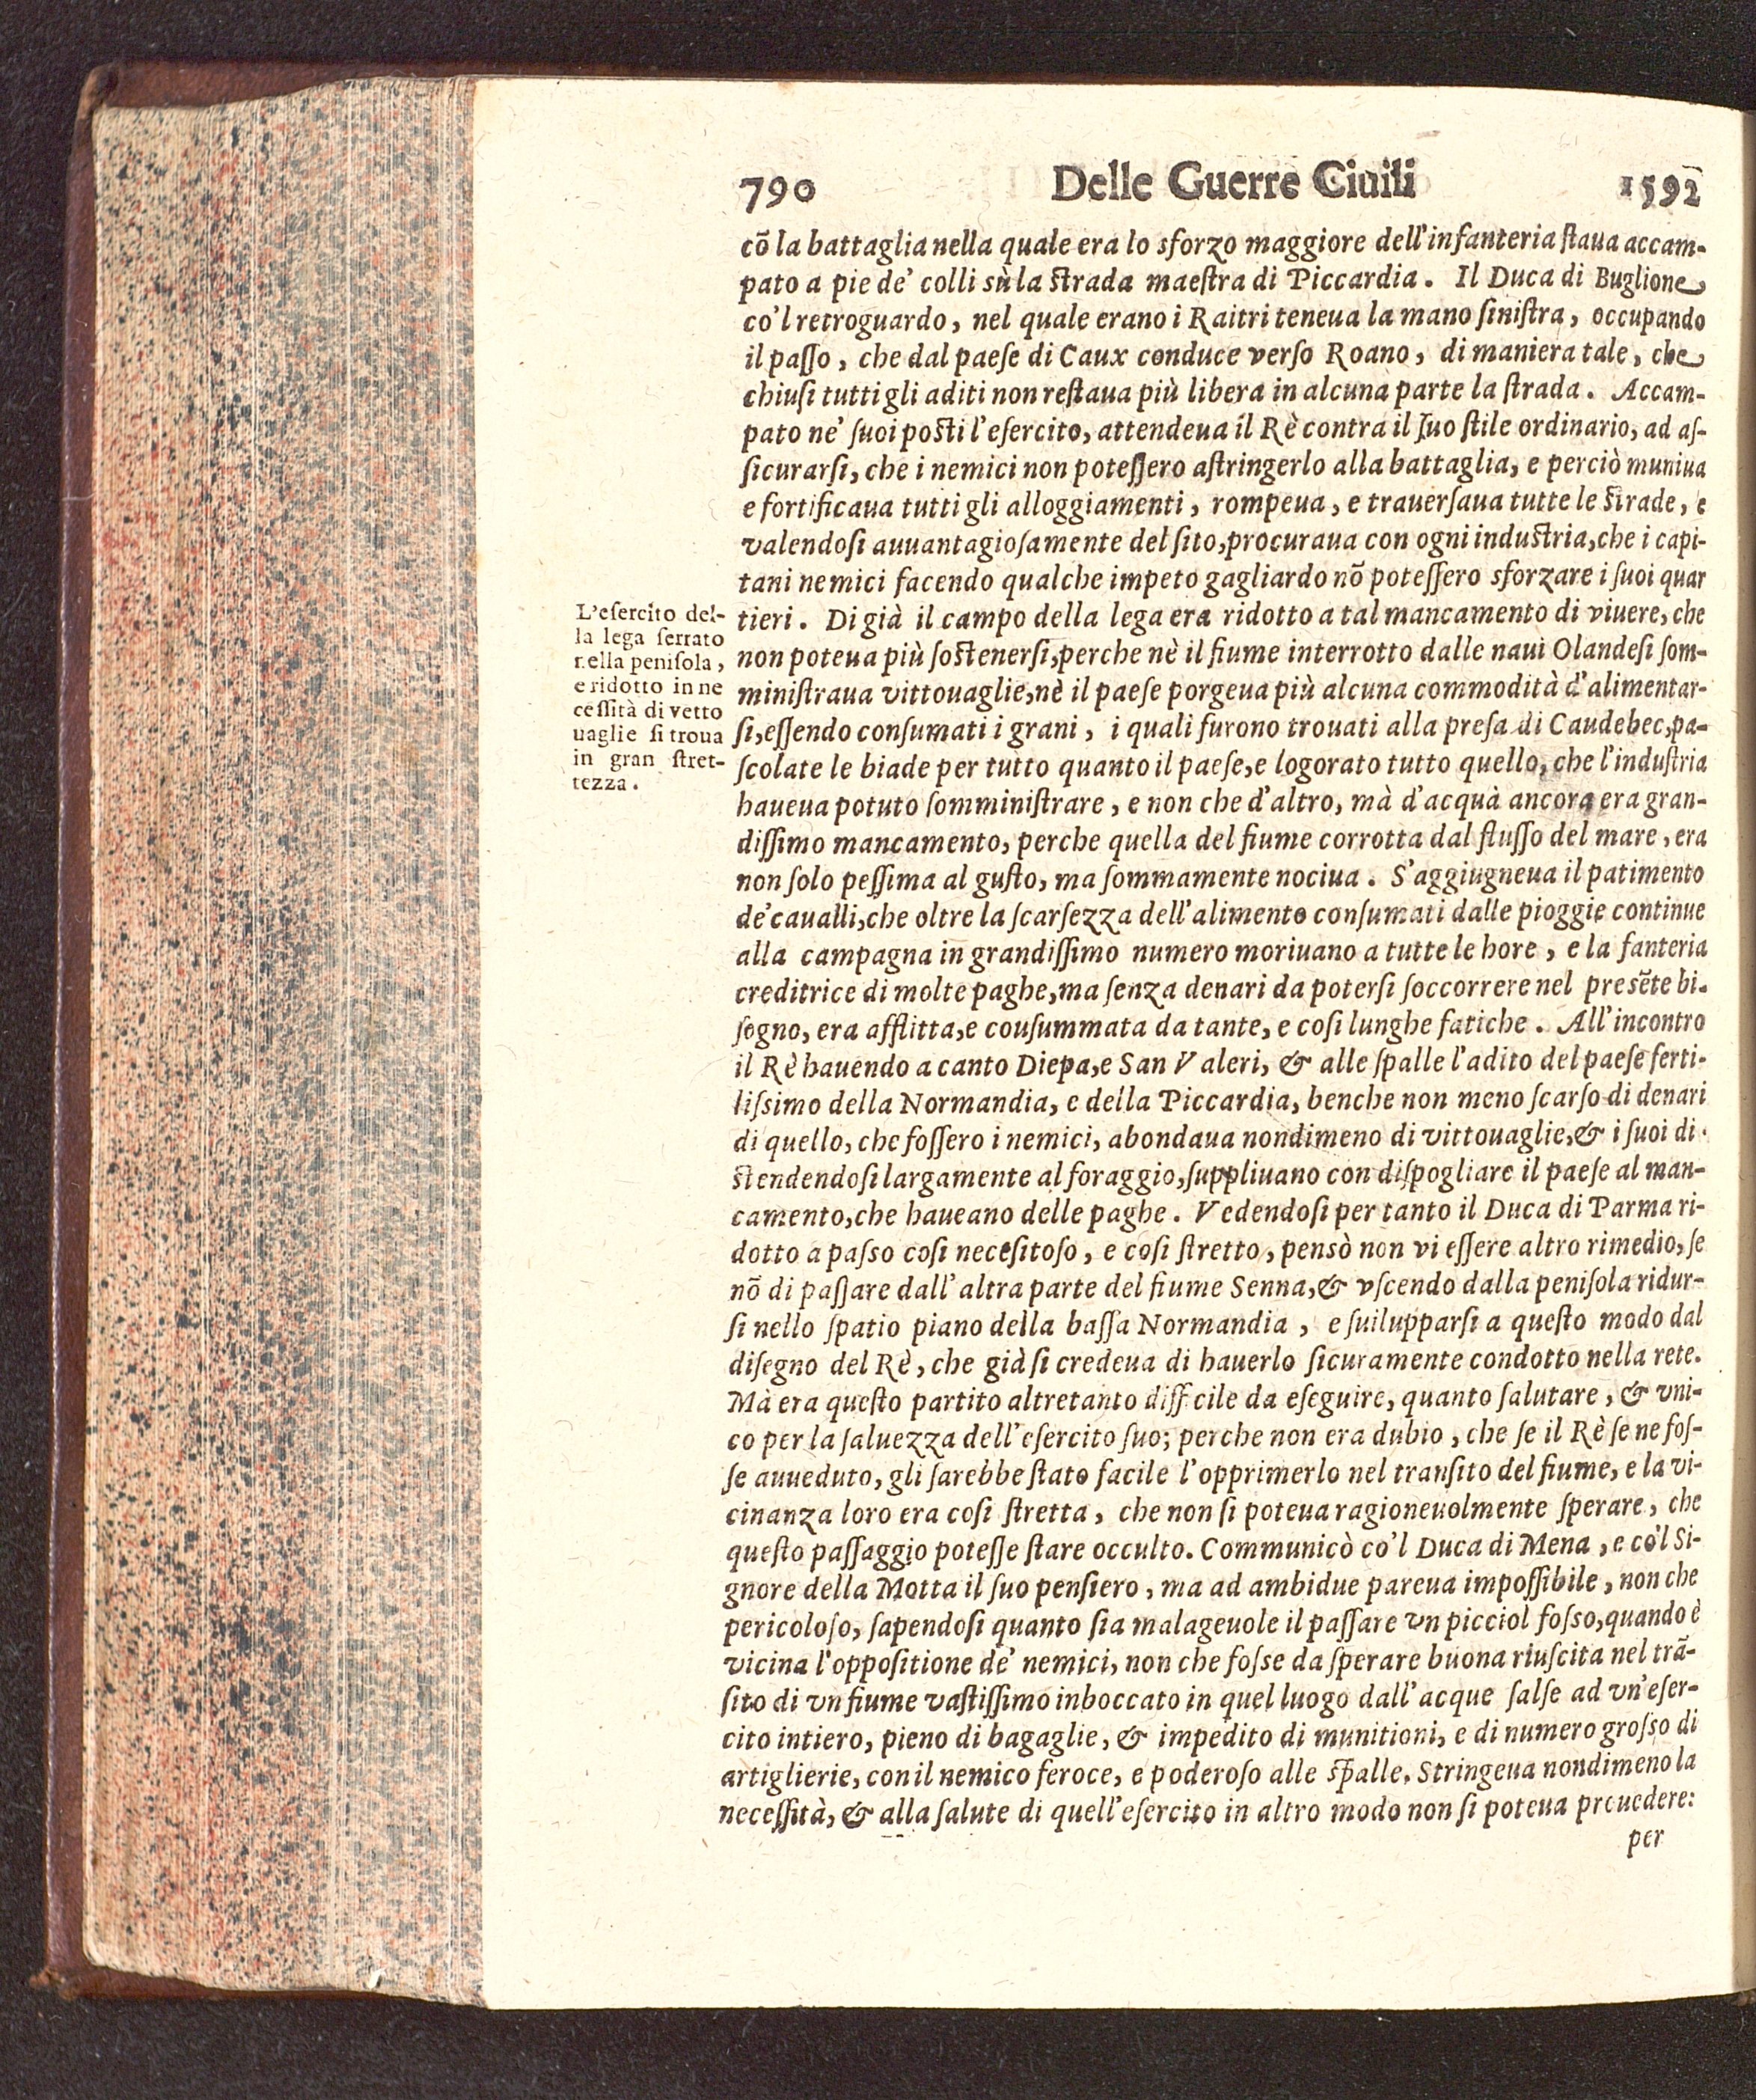 790 Delle Guerre Ciuili 1592
cõ la battaglia nella quale era lo sforzo maggiore dell'infanteria ſtaua accam-
pato a pie de' colli sù la ſtrada maeſtra di Piccardia. Il Duca di Buglione
co'l retroguardo, nel quale erano i Raitri teneua la mano ſiniſtra, occupando
il paſſo, che dal paeſe di Caux conduce verſo Roano, di maniera tale, che
chiuſi tutti gli aditi non reſtaua più libera in alcuna parte la ſtrada. Accam-
pato ne' ſuoi poſti l'eſercito, attendeua il Rè contra il ſuo ſtile ordinario, ad aſ-
ſicurarſi, che i nemici non poteſſero aſtringerlo alla battaglia, e perciò muniua
e fortificaua tutti gli alloggiamenti, rompeua, e trauerſaua tutte le ſtrade, e
valendoſi auuantagioſamente del ſito, procuraua con ogni induſtria, che i capi-
tani nemici facendo qualche impeto gagliardo nõ poteſſero sforzare i ſuoi quar
tieri. Di già il campo della lega era ridotto a tal mancamento di viuere, che
non poteua più ſoſtenerſi, perche nè il fiume interrotto dalle naui Olandeſi ſom-
miniſtraua vittouaglie, nè il paeſe porgeua più alcuna commodità d'alimentar-
ſi, eſſendo conſumati i grani, i quali furono trouati alla preſa di Caudebec, pa-
ſcolate le biade per tutto quanto il paeſe, e logorato tutto quello, che l'induſtria
haueua potuto ſomminiſtrare, e non che d'altro, mà d'acquà ancora era gran-
diſſimo mancamento, perche quella del fiume corrotta dal fluſſo del mare, era
non ſolo peſſima al guſto, ma ſommamente nociua. S'aggiugneua il patimento
de' caualli, che oltre la ſcarſezza dell'alimento conſumati dalle pioggie continue
alla campagna in grandiſſimo numero moriuano a tutte le hore, e la fanteria
creditrice di molte paghe, ma ſenza denari da poterſi ſoccorrere nel preſẽte bi-
ſogno, era afflitta, e couſummata da tante, e coſi lunghe fatiche. All'incontro
il Rè hauendo a canto Diepa, e San Valeri, & alle ſpalle l'adito del paeſe ferti-
liſsimo della Normandia, e della Piccardia, benche non meno ſcarſo di denari
di quello, che foſſero i nemici, abondaua nondimeno di vittouaglie, & i ſuoi di-
ſtendendoſi largamente al foraggio, ſuppliuano con diſpogliare il paeſe al man-
camento, che haueano delle paghe. Vedendoſi per tanto il Duca di Parma ri-
dotto a paſso coſi neceſitoſo, e coſi ſtretto, pensò non vi eſſere altro rimedio, ſe
nõ di paſſare dall'altra parte del fiume Senna, & vſcendo dalla peniſola ridur-
ſi nello ſpatio piano della baſſa Normandia, e ſuilupparſi a queſto modo dal
diſegno del Rè, che già ſi credeua di hauerlo ſicuramente condotto nella rete.
Mà era queſto partito altretanto difficile da eſeguire, quanto ſalutare, & vni-
co per la ſaluezza dell'eſercito ſuo; perche non era dubio, che ſe il Rè ſe ne foſ-
ſe auueduto, gli ſarebbe ſtato facile l'opprimerlo nel tranſito del fiume, e la vi-
cinanza loro era coſi ſtretta, che non ſi poteua ragioneuolmente ſperare, che
queſto paſſaggio poteſſe ſtare occulto. Communicò co'l Duca di Mena, e co'l Si-
gnore della Motta il ſuo penſiero, ma ad ambidue pareua impoſſibile, non che
pericoloſo, ſapendoſi quanto ſia malageuole il paſſare vn picciol foſso, quando è
vicina l'oppoſitione de' nemici, non che foſse da ſperare buona riuſcita nel trã-
ſito di vn fiume vaſtiſſimo inboccato in quel luogo dall'acque ſalſe ad vn'eſer-
cito intiero, pieno di bagaglie, & impedito di munitioni, e di numero groſso di
artiglierie, con il nemico feroce, e poderoſo alle ſpalle. Stringeua nondimeno la
neceſſità, & alla ſalute di quell'eſercito in altro modo non ſi poteua prouedere:
per
L'eſercito del-
la lega ſerrato
nella peniſola,
e ridotto in ne
ceſſità di vetto
uaglie ſi troua
in gran ſtret-
tezza.